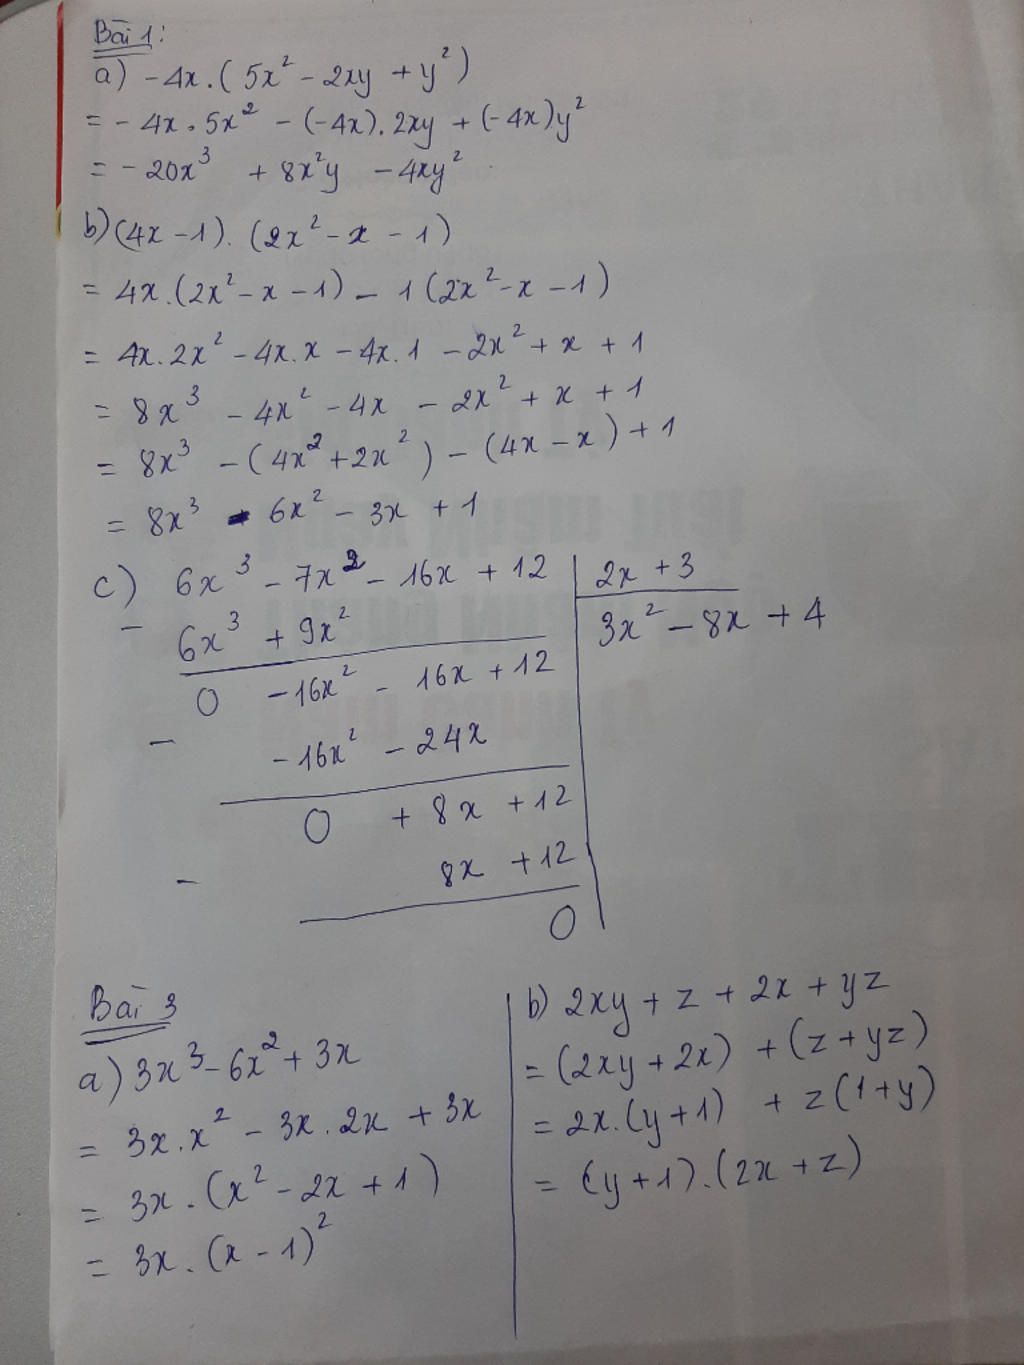 Bài 1:
a) -4x.(5x² - 2xy + y²)
= -4x.5x² - (-4x).2xy + (-4x)y²
= -20x³ + 8x²y - 4xy²
b) (4x - 1).(2x² - x - 1)
= 4x.(2x² - x - 1) - 1(2x² - x - 1)
= 4x.2x² - 4x.x - 4x.1 - 2x² + x + 1
= 8x³ - 4x² - 4x - 2x² + x + 1
= 8x³ - (4x² + 2x²) - (4x - x) + 1
= 8x³ - 6x² - 3x + 1
c) 6x³ - 7x² - 16x + 12 | 2x + 3
- 6x³ + 9x² | 3x² - 8x + 4
0 - 16x² - 16x + 12
- - 16x² - 24x
0 + 8x + 12
- 8x + 12
0
Bài 3
a) 3x³ - 6x² + 3x
= 3x.x² - 3x.2x + 3x
= 3x.(x² - 2x + 1)
= 3x.(x - 1)²
b) 2xy + z + 2x + yz
= (2xy + 2x) + (z + yz)
= 2x.(y + 1) + z(1 + y)
= (y + 1).(2x + z)